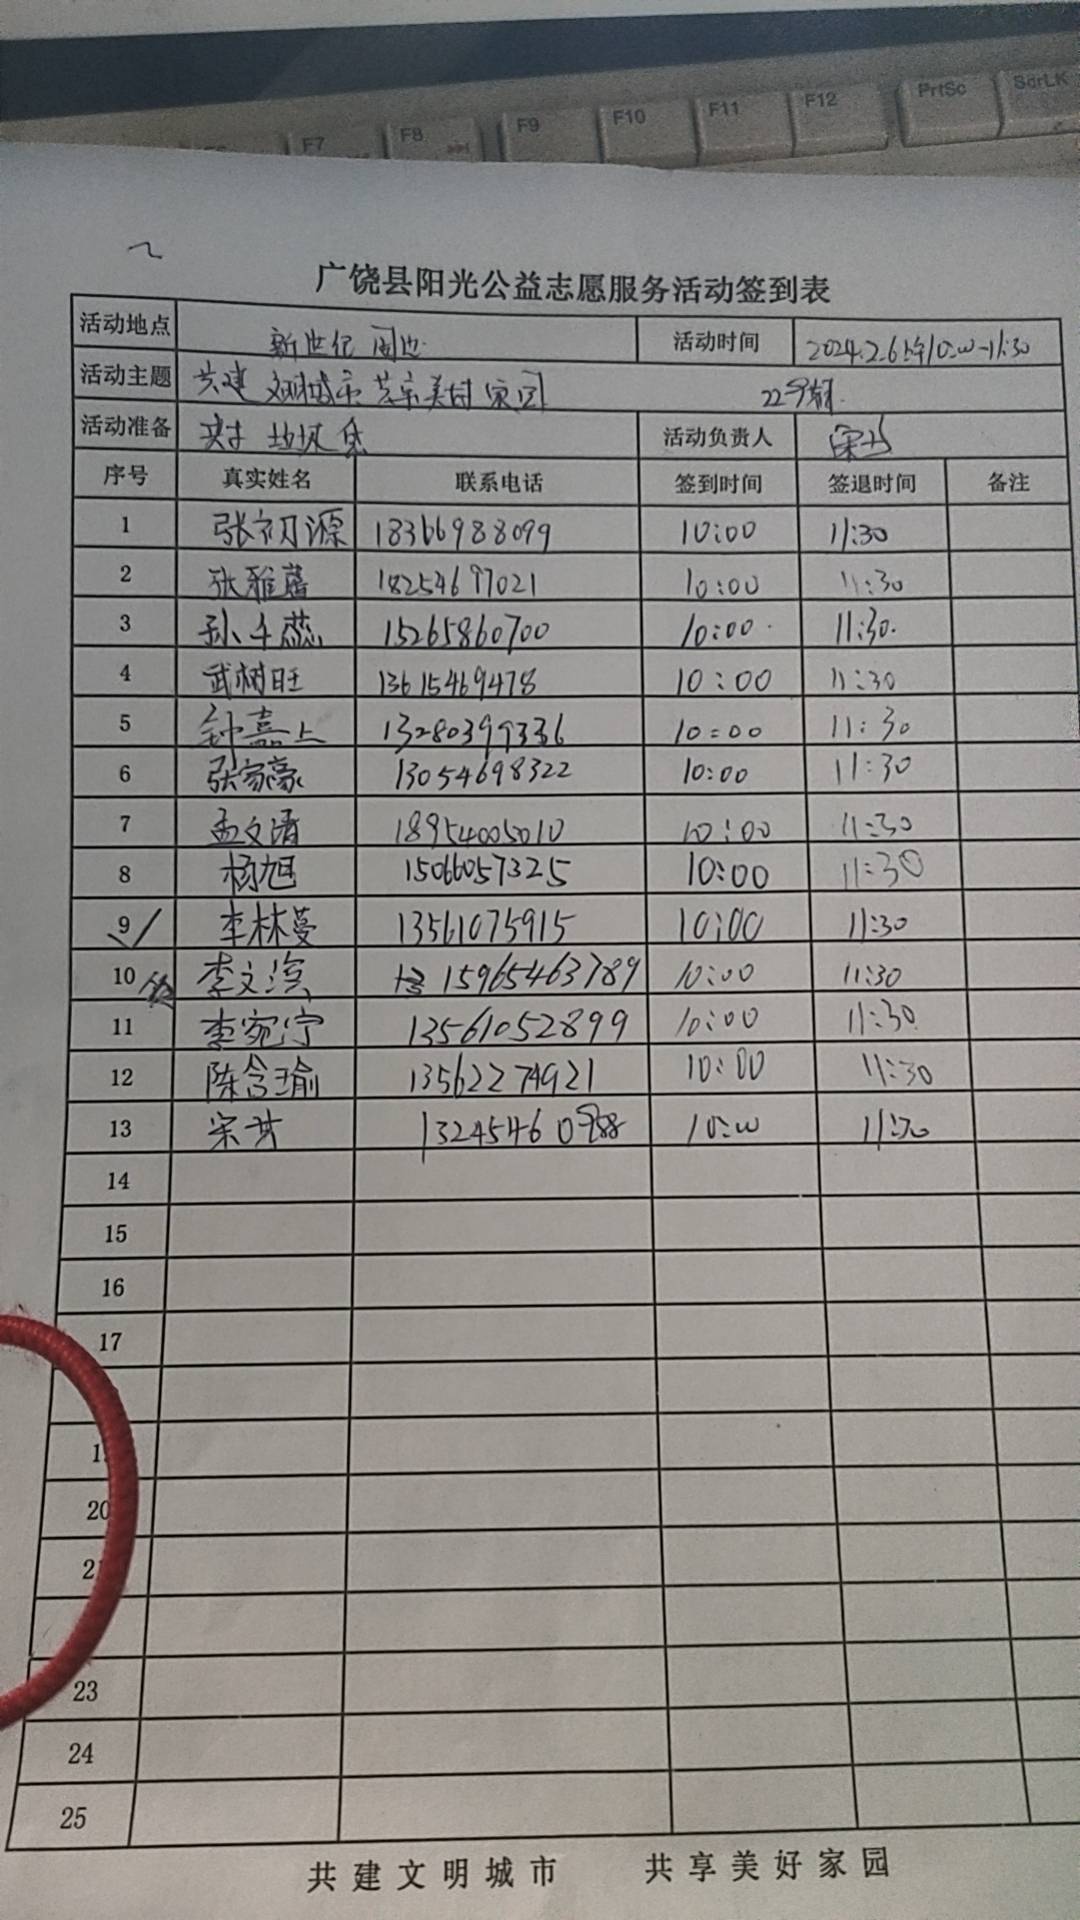 F7 F8 F9 F10 F11 F12 PrtSc ScrLK
广饶县阳光公益志愿服务活动签到表
活动地点 新世纪周边 活动时间 2024.2.6上午10:00-11:30
活动主题 共建文明城市 共享美好家园 22号
活动准备 夹子 垃圾袋 活动负责人
序号 真实姓名 联系电话 签到时间 签退时间 备注
1 张初源 18366988099 10:00 11:30
2 张雅菡 18254697021 10:00 11:30
3 孙千蕊 15265860700 10:00 11:30
4 武树旺 13615469478 10:00 11:30
5 钟嘉上 13280399336 10:00 11:30
6 张家豪 13054698322 10:00 11:30
7 孟文清 18954005010 10:00 11:30
8 杨旭 15066057325 10:00 11:30
9 李林蔓 13561075915 10:00 11:30
10 李文滨 15965463789 10:00 11:30
11 李宛宁 13561052899 10:00 11:30
12 陈含瑜 13562274921 10:00 11:30
13 10:00 11:30
14
15
16
17
20
23
24
25
共建文明城市 共享美好家园